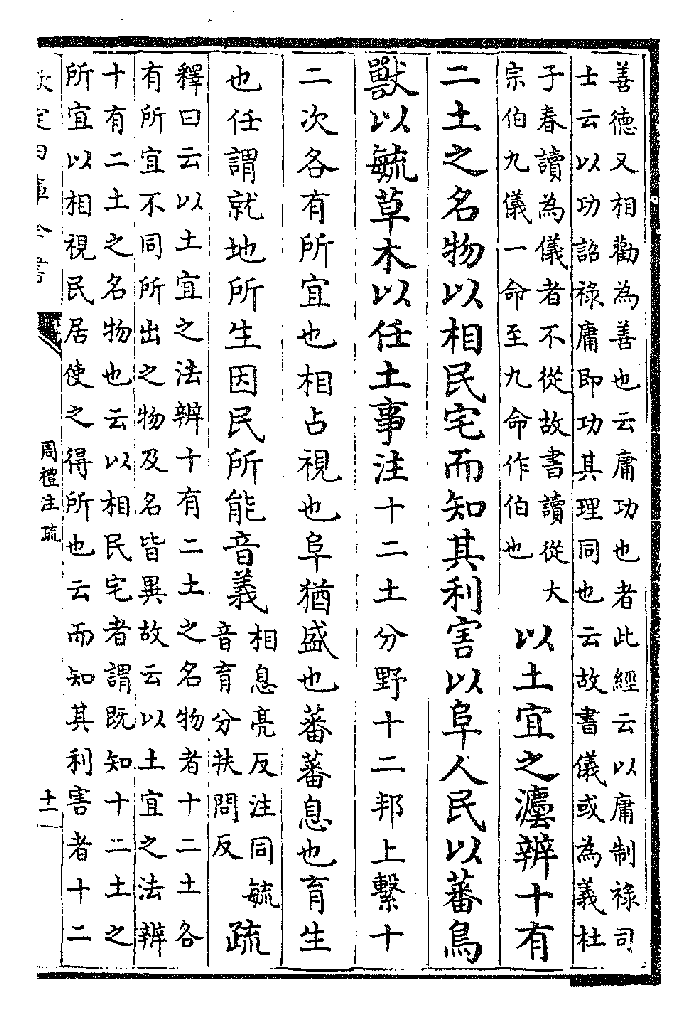 善德又相勸為善也云庸功也者此經云以庸制祿司
士云以功詔祿庸即功其理同也云故書儀或為義杜
子春讀為儀者不從故書讀從大
宗伯九儀一命至九命作伯也
以土宜之灋辨十有
二土之名物以相民宅而知其利害以阜人民以蕃鳥
獸以毓草木以任土事注十二土分野十二邦上繫十
二次各有所宜也相占視也阜猶盛也蕃蕃息也育生
也任謂就地所生因民所能音義
相息亮反注同毓
音育分扶問反
疏
釋曰云以土宜之法辨十有二土之名物者十二土各
有所宜不同所出之物及名皆異故云以土宜之法辨
十有二土之名物也云以相民宅者謂既知十二土之
所宜以相視民居使之得所也云而知其利害者十二
欽定四庫全書
周禮注疏
十一